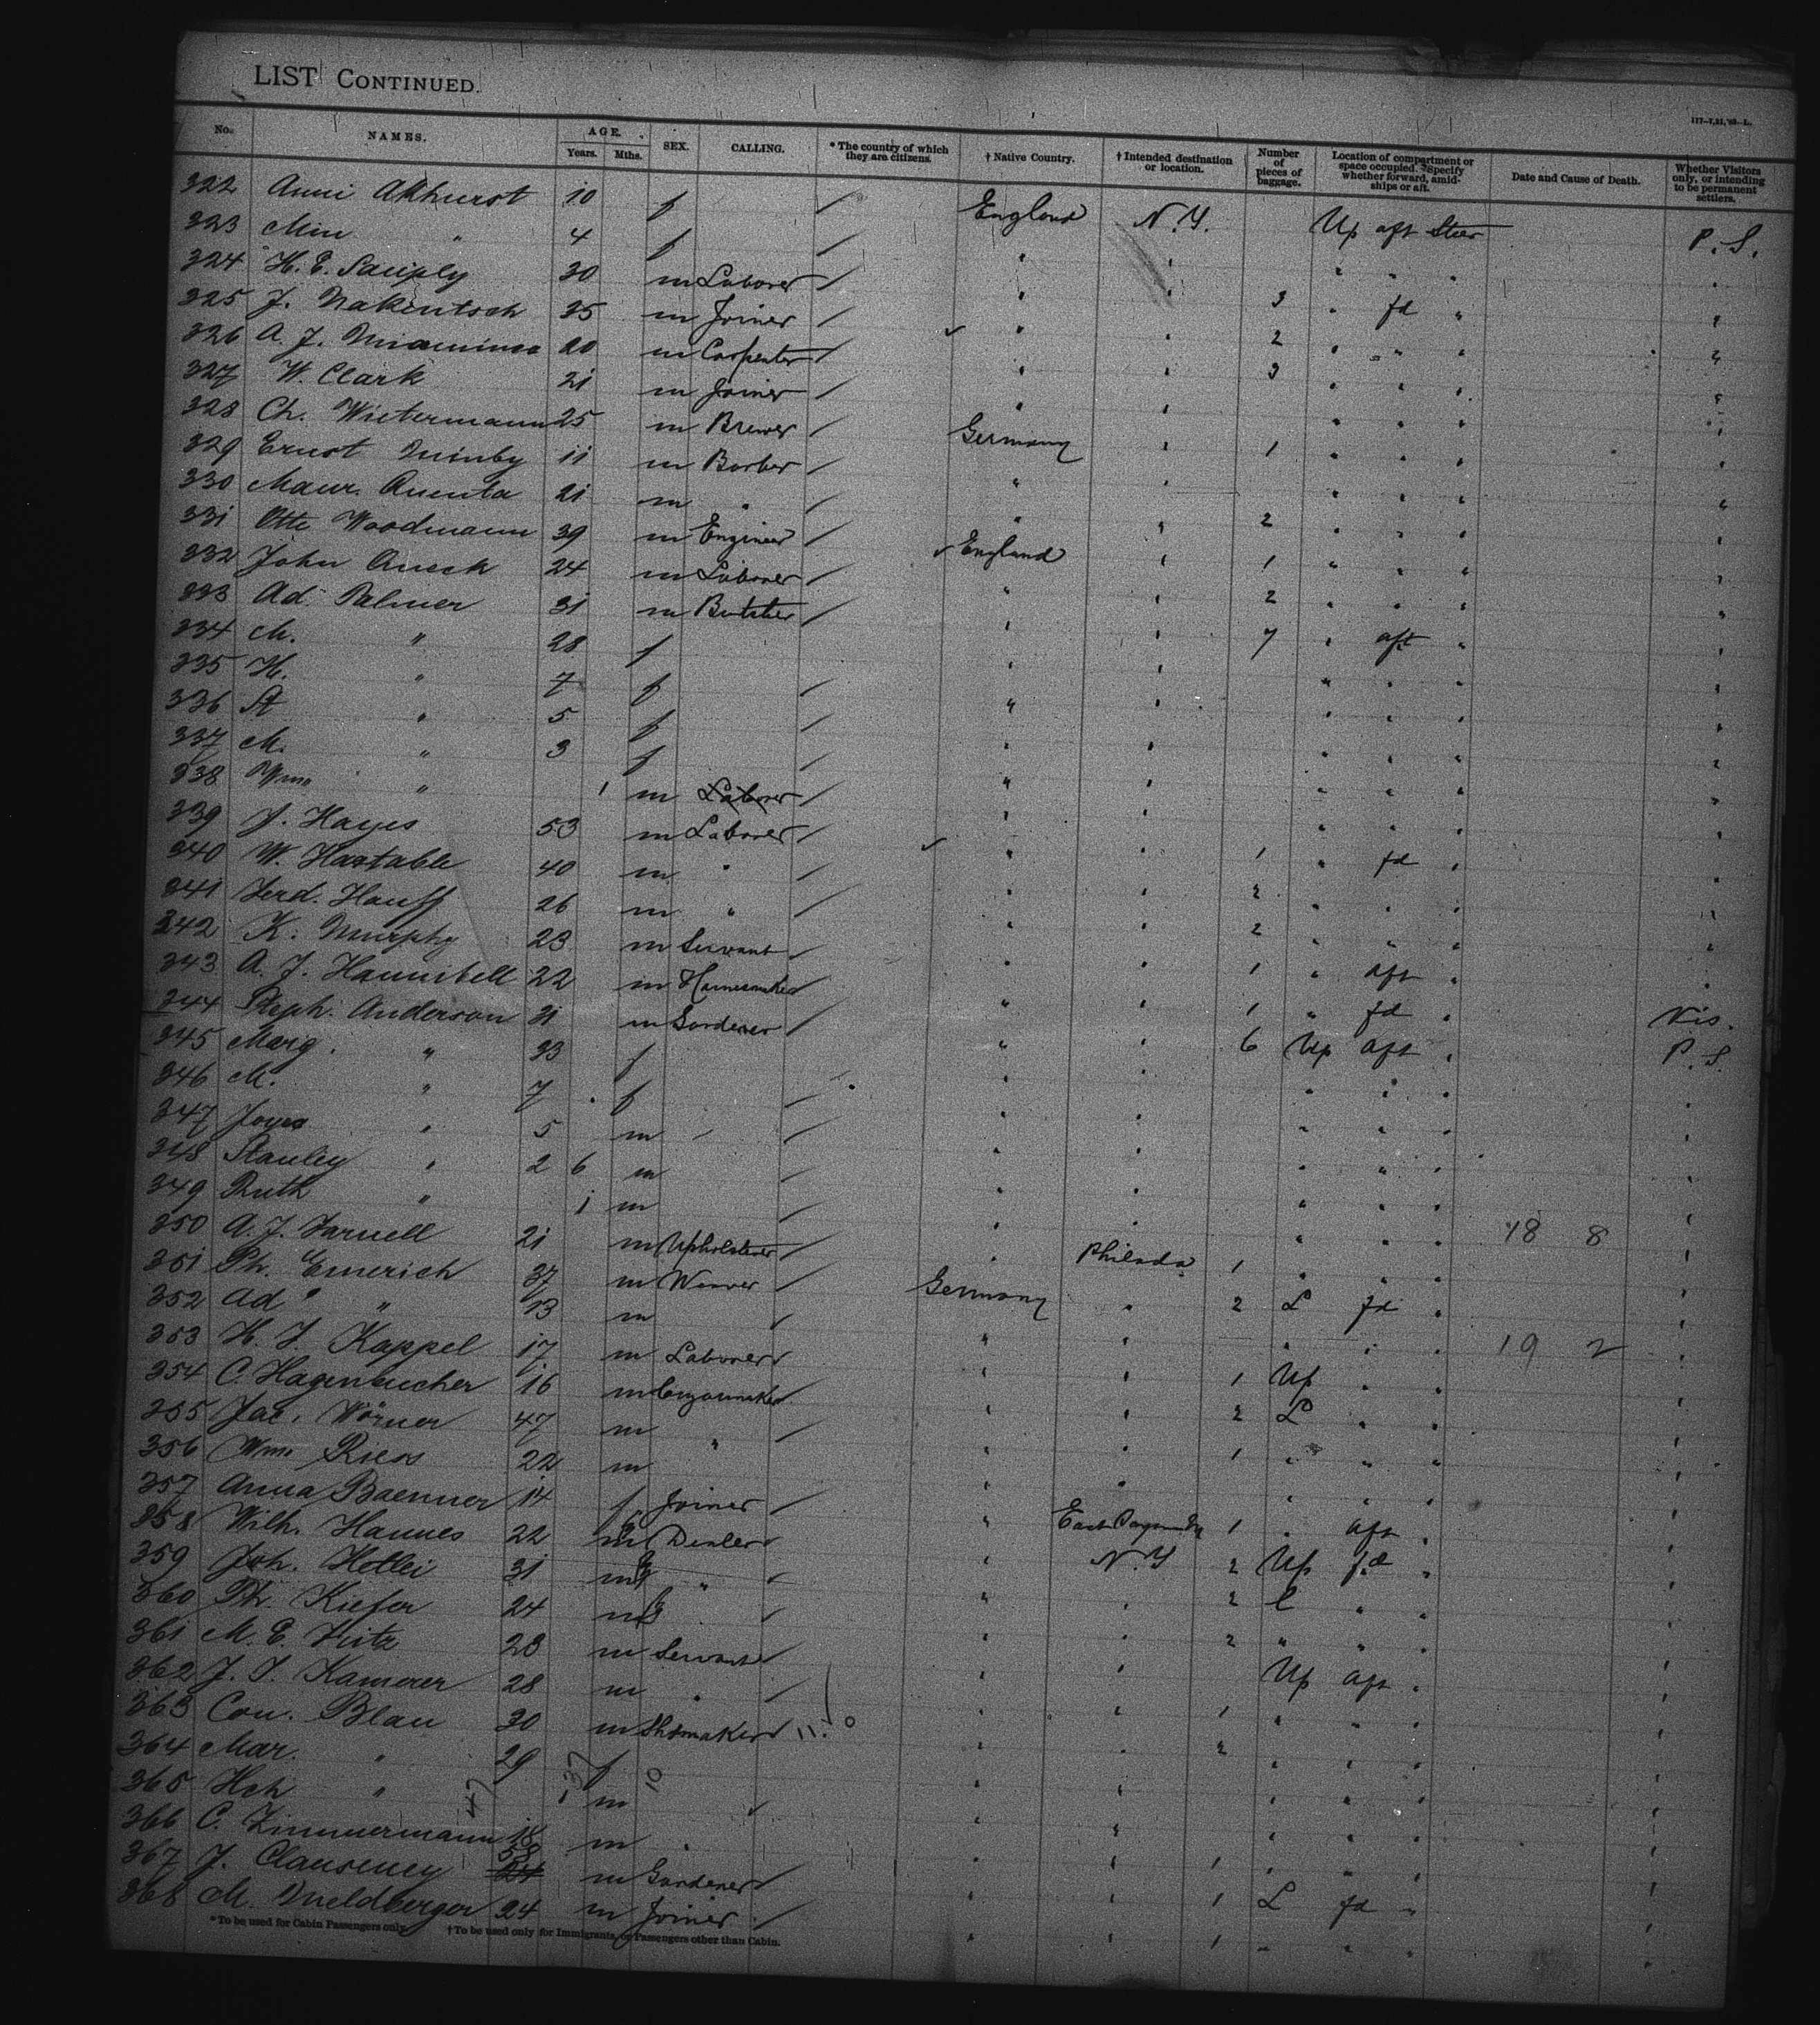 LIST CONTINUED.
117-7,21,'93-L.
No. NAMES. AGE. Years. Mths. SEX. CALLING. * The country of which they are citizens. † Native Country. † Intended destination or location. Number of pieces of baggage. Location of compartment or space occupied. Specify whether forward, amidships or aft. Date and Cause of Death. Whether Visitors only, or intending to be permanent settlers.
322 Anni Akhurst 10 f / England N.Y. Up aft Steer P.S.
323 Min " 4 f / " " " " " "
324 H. E. 30 m Laborer / " " 3 " fd " "
325 J. 35 m Joiner / " " 2 " " " "
326 A. J. 20 m Carpenter / " " 3 " " " "
327 W. Clark 21 m Joiner / " " " " " "
328 Ch. Wietermann 25 m Brewer / Germany " 1 " " " "
329 Ernst 11 m Barber / " " " " " "
330 Maur. 21 m " / " " 2 " " " "
331 Otto Woodmann 39 m Engineer / England " 1 " " " "
332 John Queck 24 m Laborer / " " 2 " " " "
333 Ad. Palmer 31 m Butcher / " " 7 " aft " "
334 M. " 28 f " " " " " "
335 H. " 7 f / " " " " " "
336 St " 5 f / " " " " " "
337 M. " 3 f / " " " " " "
338 Wm " 1 m Laborer / " " " " " "
339 J. Hayes 53 m Laborer / " " 1 " fd " "
340 W. Hastable 40 m " / " " 2 " " " "
341 Ferd. Hauff 26 m " / " " 2 " " " "
342 K. Murphy 23 m Servant / " " 1 " aft " "
343 A. J. Hannibell 22 m Harnesmaker / " " 1 " fd " Vis.
344 Steph. Anderson 31 m Gardener / " " 6 Up aft " P.S.
345 Marg. " 33 f / " " " " " "
346 M. " 7 f / " " " " " "
347 " 5 m / " " " " " "
348 Stanley " 2 6 m / " " " " " "
349 Ruth " 1 m / " " " " " 18 8 "
350 A. J. Farnell 21 m Upholsterer / " Philada 1 " " " "
351 Ph. Emerich 37 m Weaver / Germany " 2 L fd " "
352 Ad " 13 m / " " " " " 19 2 "
353 H. J. Kappel 17 m Laborer / " " 1 Up " " "
354 C. Hagenbucher 16 m Cigarmaker / " " 2 L " " "
355 Jac. Wörner 47 m " / " " 1 " " " "
356 Wm Riess 22 m " " " " " "
357 Anna Baenner 14 f Joiner / " East 1 " aft " "
358 Wilh. Hannes 22 m Dealer / " N.Y 2 Up fd " "
359 Joh. 31 m " / " " 2 l " " "
360 Ph. Kiefer 24 m / " " 2 " " " "
361 M. E. 23 m Servant / " " Up aft " "
362 J. J. Kamerer 28 m " / " " 1 " " " "
363 Con. Blau 30 m Shomaker / " " 2 " " " "
364 Mar. " 29 f " " " " " "
365 Hch " m / " " " " " "
366 C. Zimmermann 18 m " " " 1 " " " "
367 J. 24 58 m Gardener / " " 1 L fd " "
368 M. 24 m Joiner / " " 1 " " " "
47 37 10
* To be used for Cabin Passengers only. † To be used only for Immigrants, or Passengers other than Cabin.